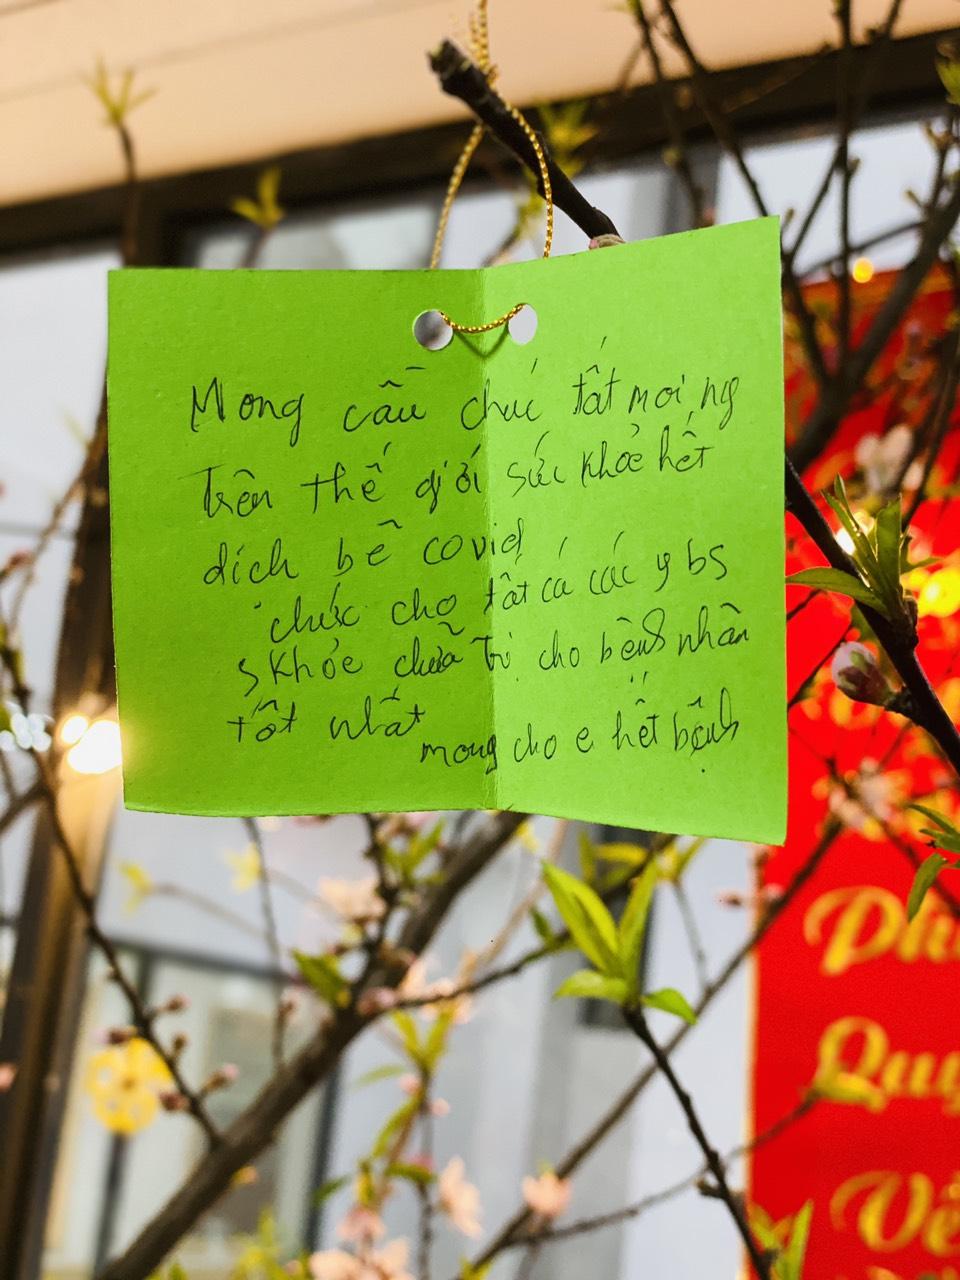 Mong cầu chúc tất mọi ng
trên thế giới sức khỏe hết
dịch bể covid
chúc cho tất cá các y bs
s khỏe chữa trị cho bệnh nhân
tốt nhất
mong cho e hết bệnh
Quy
Về